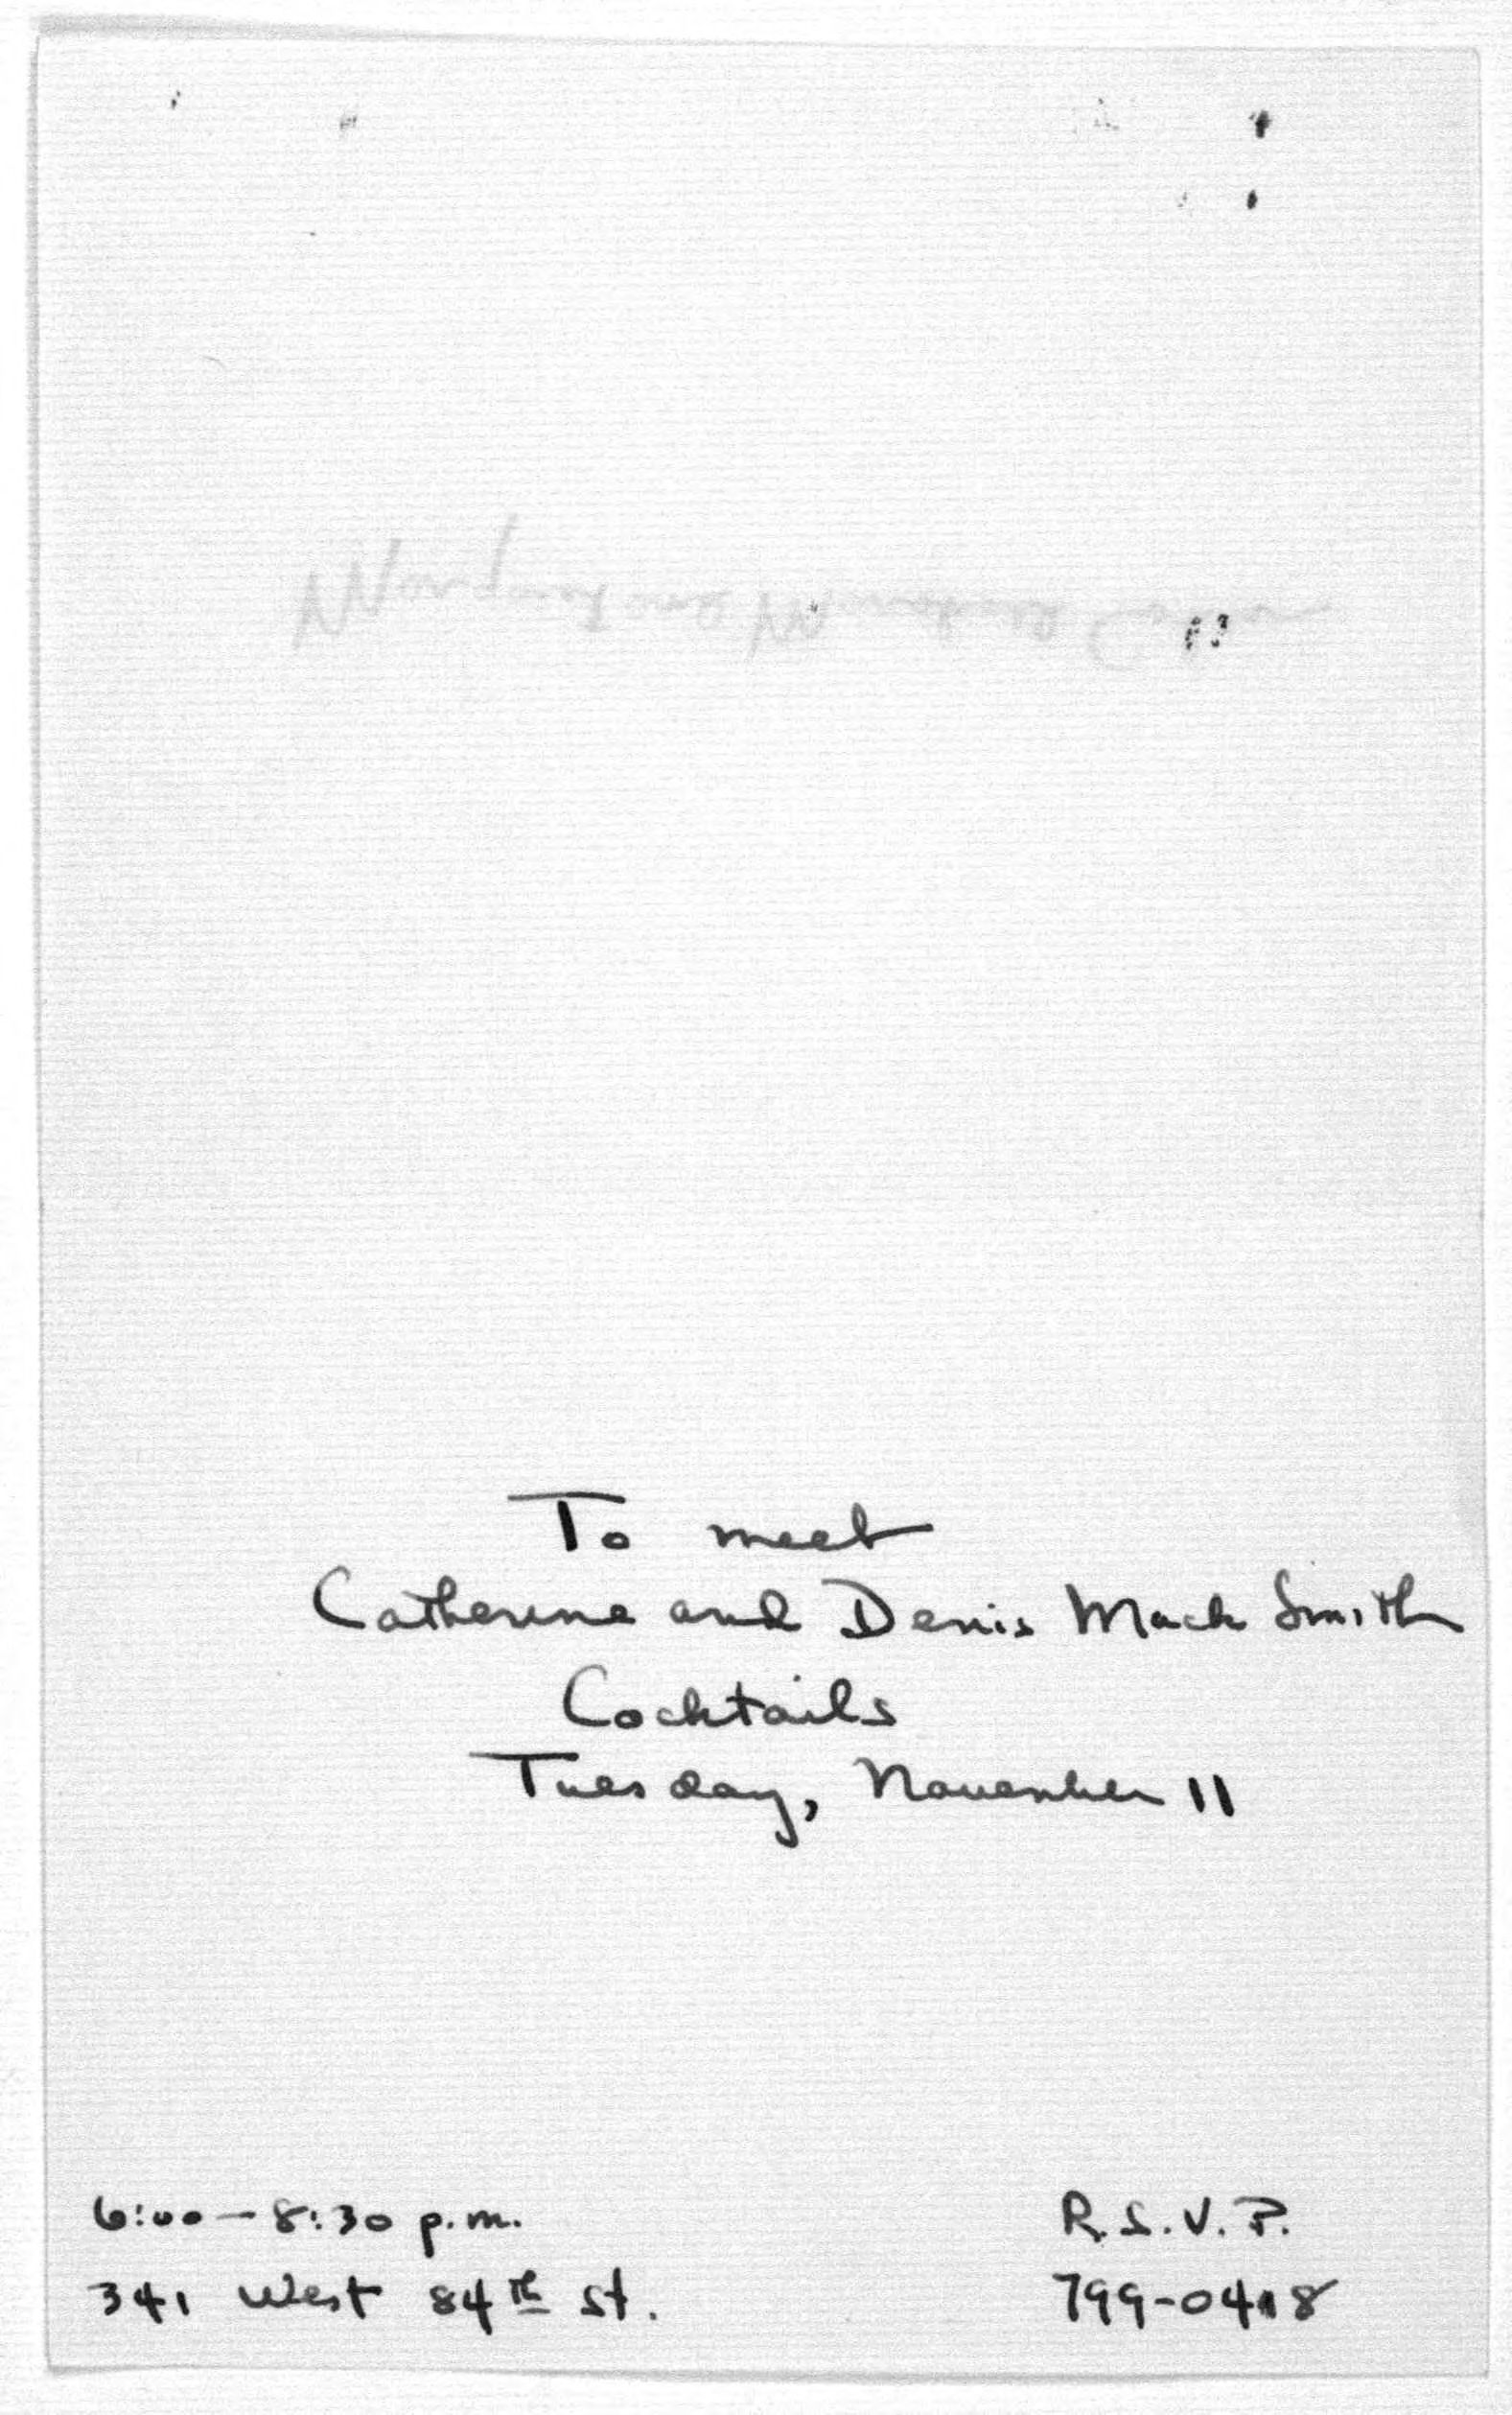 To meet
Catherine and Denis Mack Smith
Cocktails
Tuesday, November 11
6:00 – 8:30 p.m.
341 West 84th St.
R.S.V.P.
799-0418